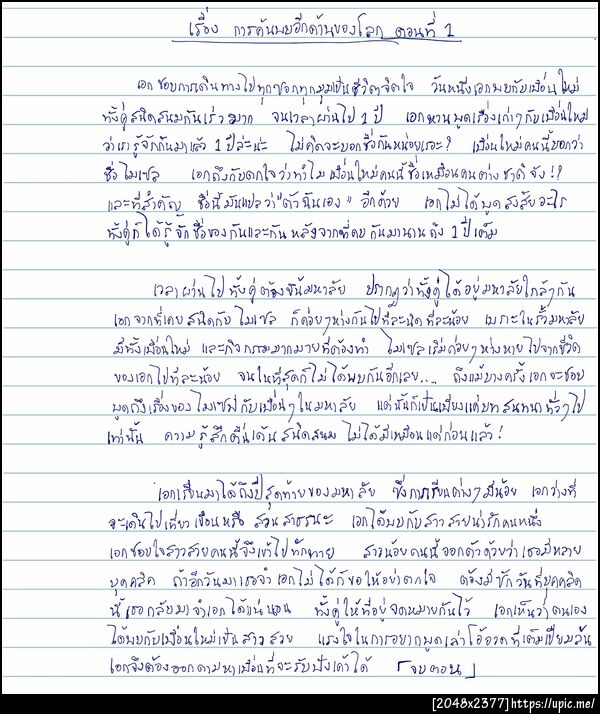 เรื่อง การค้นพบอีกด้านของโลก ตอนที่ 1
เอกชอบการเดินทางไปทุกๆซอกทุกมุมเป็นชีวิตจิตใจ วันหนึ่งเอกพบกับเพื่อนใหม่
ทั้งคู่สนิดสนมกันเร็วมาก จนเวลาผ่านไป 1 ปี เอกหวนพูดเรื่องเก่าๆกับเพื่อนใหม่
ว่าเรารู้จักกันมาแล้ว 1 ปีล่ะนะ ไม่คิดจะบอกชื่อกันหน่อยเรอะ? เพื่อนใหม่คนนี้บอกว่า
ชื่อไมเซล เอกถึงกับตกใจว่าทำไมเพื่อนใหม่คนนี้ชื่อเหมือนคนต่างชาติจัง!?
และที่สำคัญ ชื่อนี้มันแปลว่า"ตัวฉันเอง" อีกด้วย เอกไม่ได้พูดสงสัยอะไร
ทั้งคู่ก็ได้รู้จักชื่อของกันและกัน หลังจากที่คบกันมานานถึง 1 ปีเต็ม
เวลาผ่านไปทั้งคู่ต้องขึ้นมหาลัย ปรากฎว่าทั้งคู่ได้อยู่มหาลัยใกล้ๆกัน
เอกจากที่เคยสนิดกับไมเซล ก็ค่อยๆห่างกันไปทีละนิดทีละน้อย เพราะในรั้วมหาลัย
มีทั้งเพื่อนใหม่ และกิจกรรมมากมายที่ต้องทำ ไมเซลเริ่มค่อยๆห่างหายไปจากชีวิต
ของเอกไปทีละน้อย จนในที่สุดก็ไม่ได้พบกันอีกเลย... ถึงแม้บางครั้งเอกจะชอบ
พูดถึงเรื่องของไมเซลกับเพื่อนๆในมหาลัย แต่นั่นก็เป็นเพียงแค่บทสนทนาทั่วๆไป
เท่านั้น ความรู้สึกตื่นเต้นสนิดสนม ไม่ได้มีเหมือนแต่ก่อนแล้ว!
เอกเรียนมาได้ถึงปีสุดท้ายของมหาลัย ซึ่งการเรียนต่างๆมีน้อย เอกว่างที่
จะเดินไปเที่ยวเขื่อนหรือ สวนสาธารนะ เอกได้พบกับสาวสวยน่ารักคนหนึ่ง
เอกชอบใจสาวสวยคนนี้จึงเข้าไปทักทาย สาวน้อยคนนี้ออกตัวด้วยว่าเธอมีหลาย
บุคคลิค ถ้าอีกวันมาเธอจำเอกไม่ได้ก็ขอให้อย่าตกใจ ต้องมีซักวันที่บุคคลิค
นี้เธอกลับมาจำเอกได้แน่นอน ทั้งคู่ให้ที่อยู่จดหมายกันไว้ เอกเห็นว่าตนเอง
ได้พบกับเพื่อนใหม่เป็นสาวสวย แรงใจในการอยากพูดเล่าโอ้อวดที่เต็มเปี่ยมล้น
เอกจึงต้องออกตามหาเพื่อนที่จะรับฟังเค้าได้ 「จบตอน」
[2048x2377]https://upic.me/